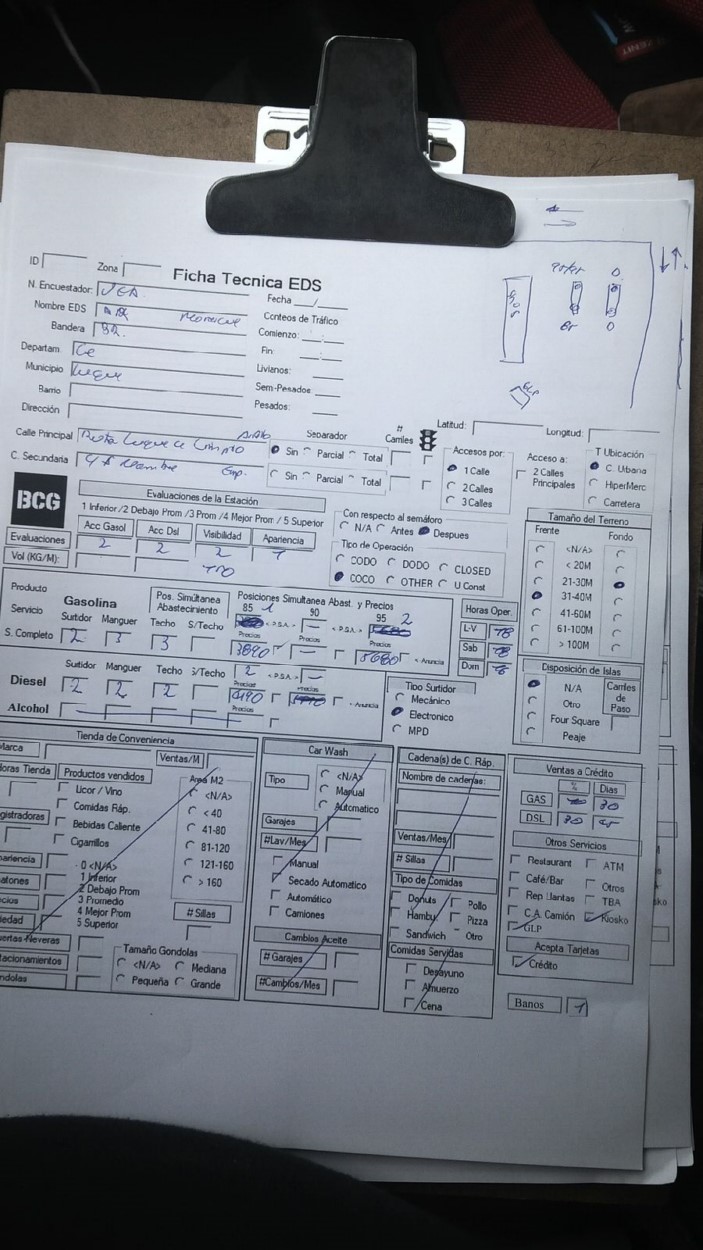 ID Zona
Ficha Tecnica EDS
N. Encuestador:
Fecha __/__
Nombre EDS
Conteos de Tráfico
Bandera BR.
Comienzo:
Departam Ce
Fin:
Municipio Luque
Livianos:
Barrio
Sem-Pesados:
Dirección
Pesados:
Calle Principal Ruta Luque
Separador
# Carriles
Latitud: Longitud:
Sin Parcial Total
C. Secundaria
Sin Parcial Total
Accesos por:
1 Calle
2 Calles
3 Calles
Acceso a:
2 Calles Principales
T Ubicación
C. Urbana
HiperMerc
Carretera
BCG
Evaluaciones de la Estación
1 Inferior /2 Debajo Prom /3 Prom /4 Mejor Prom / 5 Superior
Acc Gasol Acc Dsl Visibilidad Apariencia
Evaluaciones 2 2 2 1
Vol (KG/M):
Con respecto al semáforo
N/A Antes Despues
Tipo de Operación
CODO DODO CLOSED
COCO OTHER U Const
Tamaño del Terreno
Frente Fondo
<N/A>
< 20M
21-30M
31-40M
41-60M
61-100M
> 100M
Producto Gasolina
Pos. Simultánea Abastecimiento
Posiciones Simultanea Abast. y Precios
85 1 90 95 2
Servicio Surtidor Manguer Techo S/Techo
< P.S.A.> < P.S.A.>
Precios Precios Precios
S. Completo 2 3 3 3890 — 5680 < Anuncia
Horas Oper.
L-V 18
Sab 18
Dom 18
Surtidor Manguer Techo S/Techo 2 < P.S.A.> —
Diesel 2 2 2 4190 < Anuncia
Precios Precios
Alcohol
Tipo Surtidor
Mecánico
Electronico
MPD
Disposición de Islas
N/A
Otro
Four Square
Peaje
Carriles de Paso
Tienda de Conveniencia
Marca Ventas/M
Horas Tienda Productos vendidos
Licor / Vino
Comidas Ráp.
Bebidas Caliente
Cigarrillos
0 <N/A>
1 Inferior
2 Debajo Prom
3 Promedio
4 Mejor Prom
5 Superior
Area M2
<N/A>
< 40
41-80
81-120
121-160
> 160
# Sillas
Tamaño Gondolas
<N/A> Mediana
Pequeña Grande
Car Wash
Tipo
<N/A>
Manual
Automatico
Garajes
#Lav/Mes
Manual
Secado Automatico
Automático
Camiones
Cambios Aceite
# Garajes
#Cambios/Mes
Cadena(s) de C. Ráp.
Nombre de cadenas:
Ventas/Mes
# Sillas
Tipo de Comidas
Donuts Pollo
Hambu Pizza
Sandwich Otro
Comidas Servidas
Desayuno
Almuerzo
Cena
Ventas a Crédito
% Dias
GAS 30
DSL 30 45
Otros Servicios
Restaurant ATM
Café/Bar Otros
Rep Llantas TBA
C.A. Camión Kiosko
GLP
Acepta Tarjetas
Crédito
Banos 1